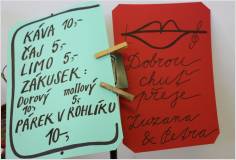 KÁVA 10,-
ČAJ 5,-
LIMO 5,-
ZÁKUSEK:
Durový mollový
10,- 5,-
PÁREK V ROHLÍKU
10,-
Dobrou
chuť
přeje
Zuzana
& Petra